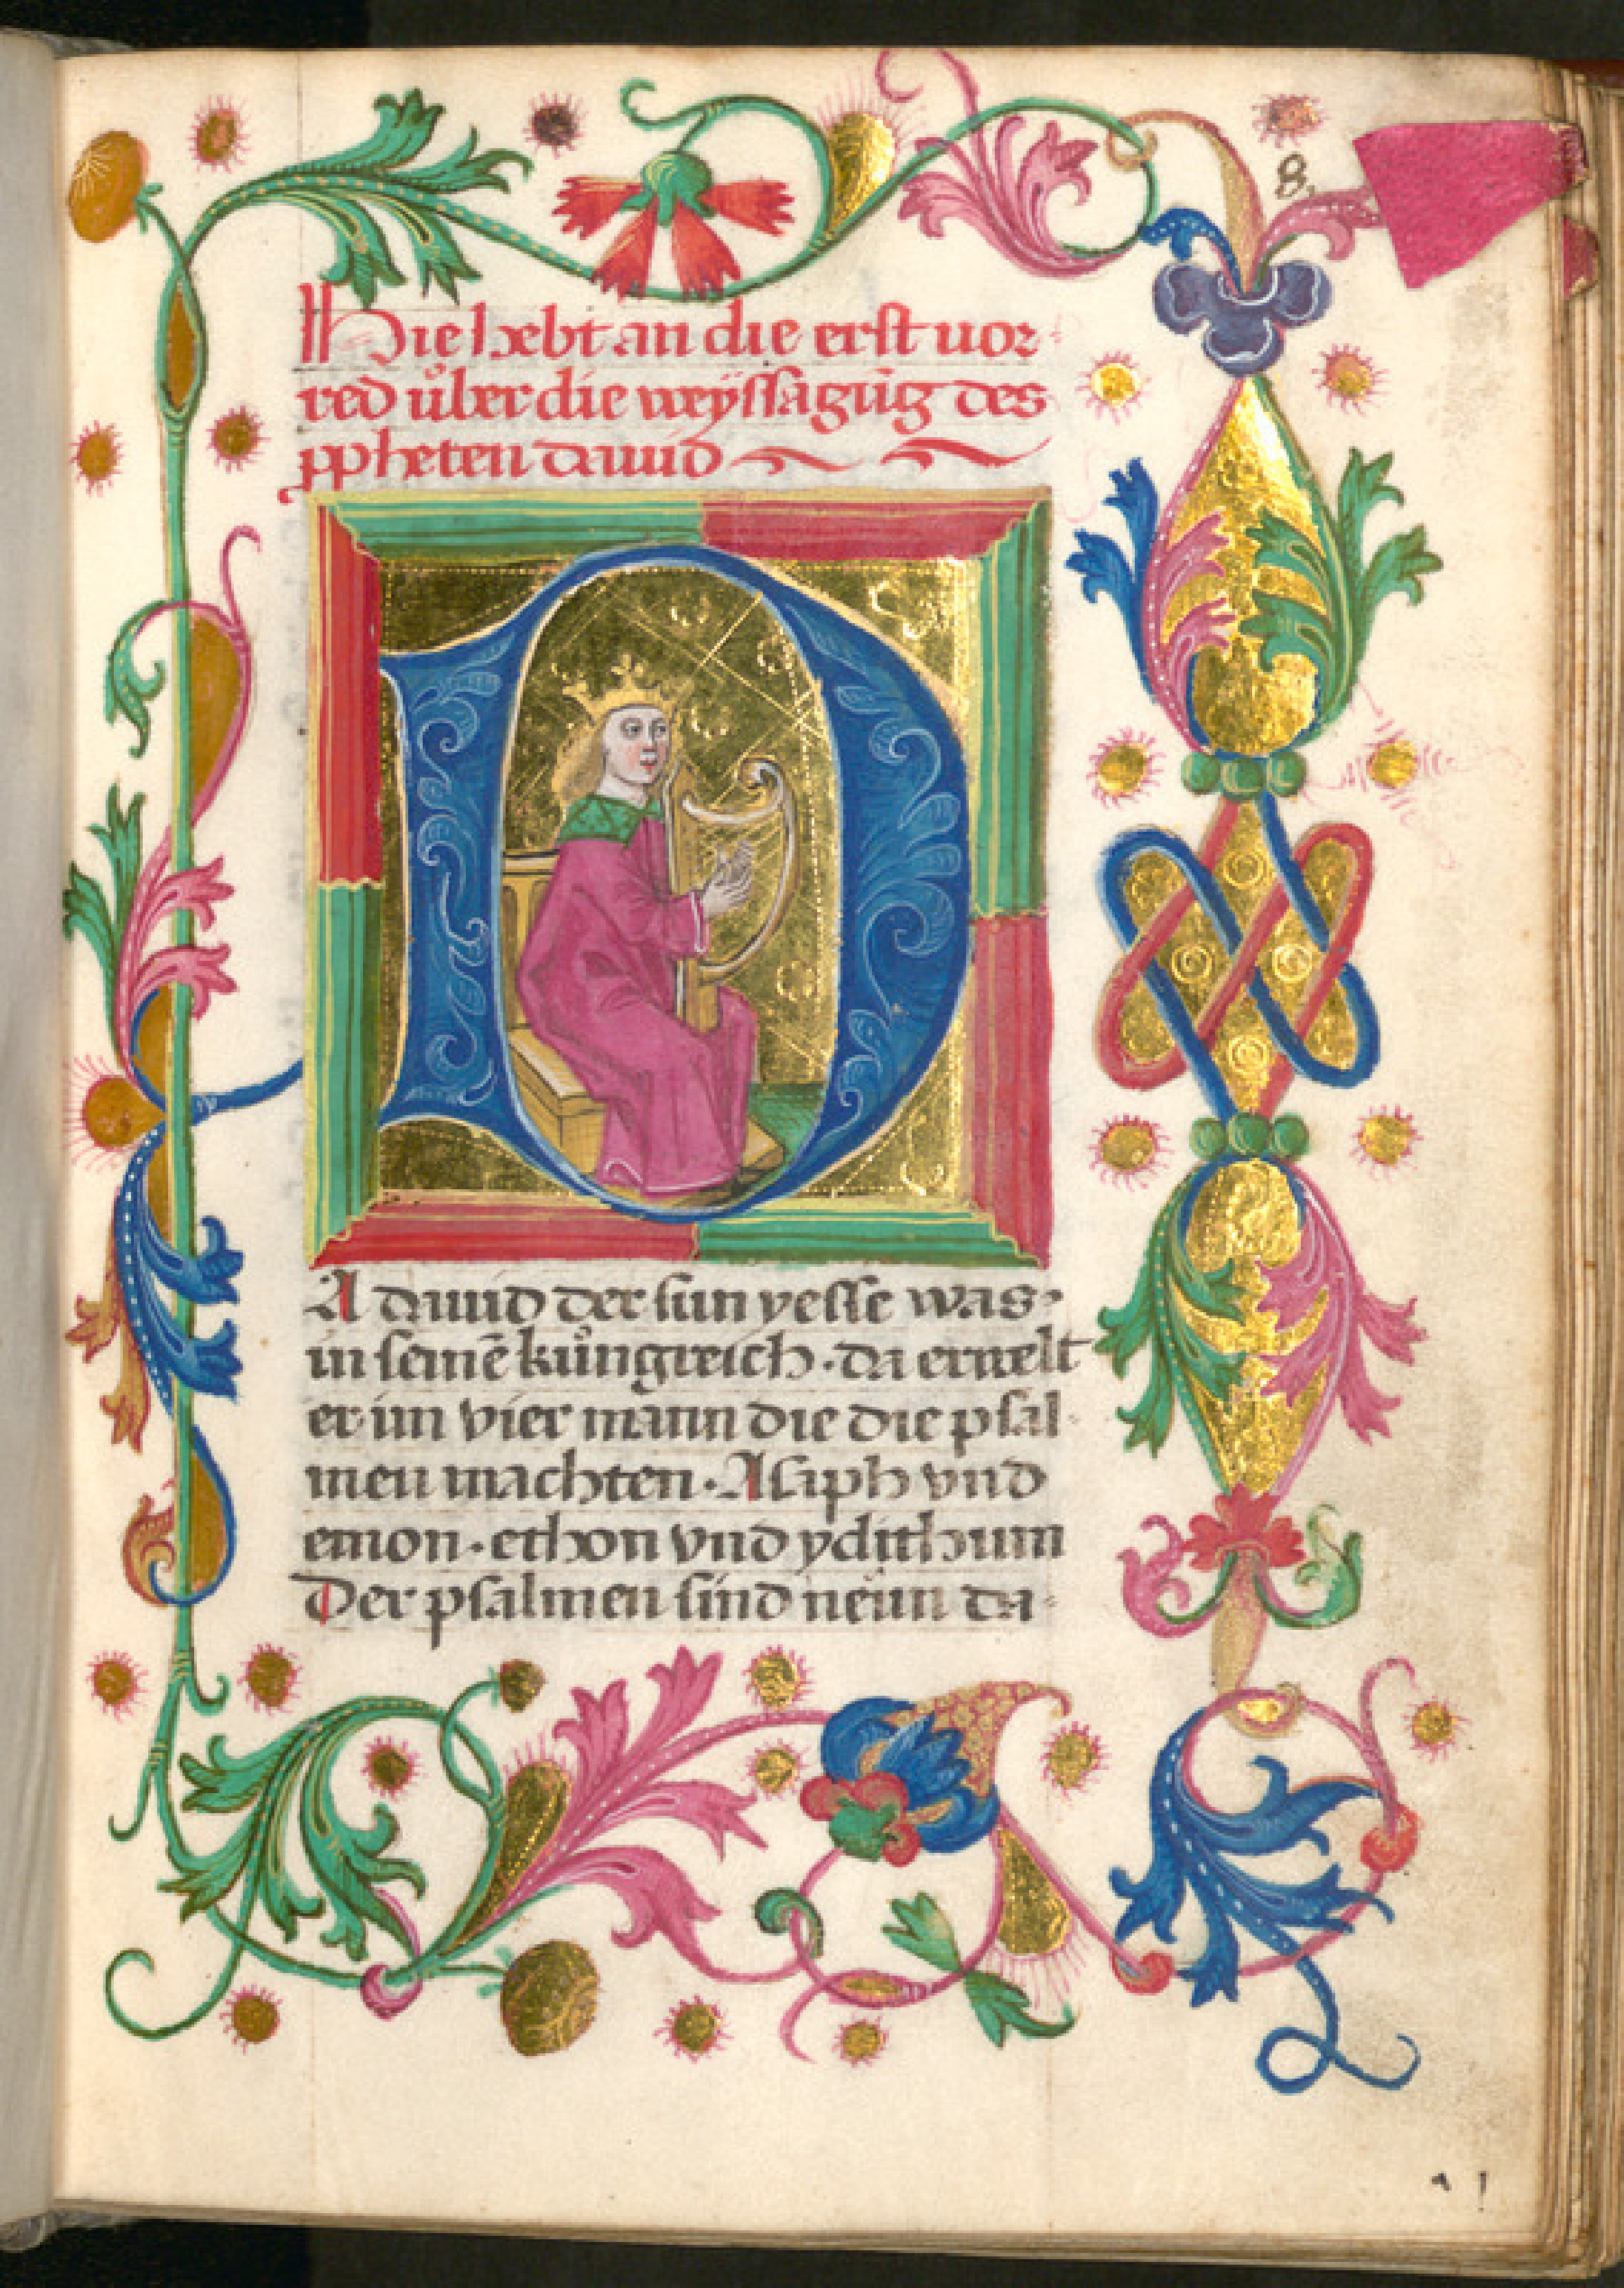 8.
Hie hebt an die erst uor⸗
red uͤber die weÿssagūg des
ppheten dauid
D
A dauid der sun yesse was
in seinē kuͤngreich · da erwelt
er im vier mann die die psal⸗
men machten · Asaph vnd
emon · ethon vnd ydithum
Der psalmen sind neün da⸗